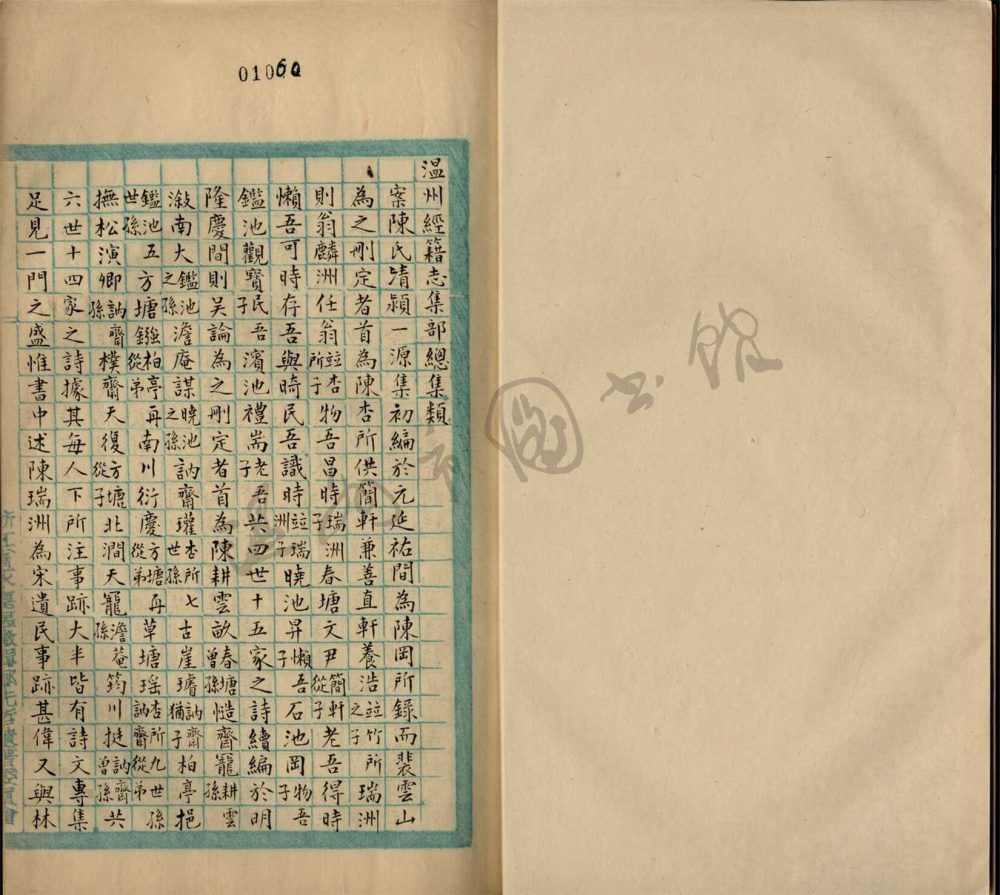 01060
溫州經籍志集部總集類
案陳氏清潁一源集初編於元延祐間為陳岡所錄而裴雲山
為之刪定者首為陳杏所供簡軒兼善直軒養浩並竹之子所瑞洲
則翁麟洲任翁並杏所子物吾昌時瑞洲子春塘文尹簡軒從子老吾得時
懶吾可時存吾與時民吾識時並瑞洲子曉池昇懶吾子石池岡物吾子
鑑池觀寶民吾子濱池禮耑老吾子共四世十五家之詩續編於明
隆慶間則吳論為之刪定者首為陳耕雲畝春塘曾孫慥齋寵耕雲孫
漵南大鑑池之孫澹庵謀曉池之孫訥齋瓘杏所七世孫古崖璿訥齋猶子柏亭挹
鑑池五世孫方塘鏹柏亭從弟再南川衍慶方塘再從弟草塘瑶杏所九世孫訥齋從弟
撫松演卿訥齋孫樸齋天復方塘從子北澗天寵澹菴孫筠川挺訥齋曾孫共
六世十四家之詩據其每人下所注事跡大半皆有詩文專集
足見一門之盛惟書中述陳瑞洲為宋遺民事跡甚偉又與林
圖書館